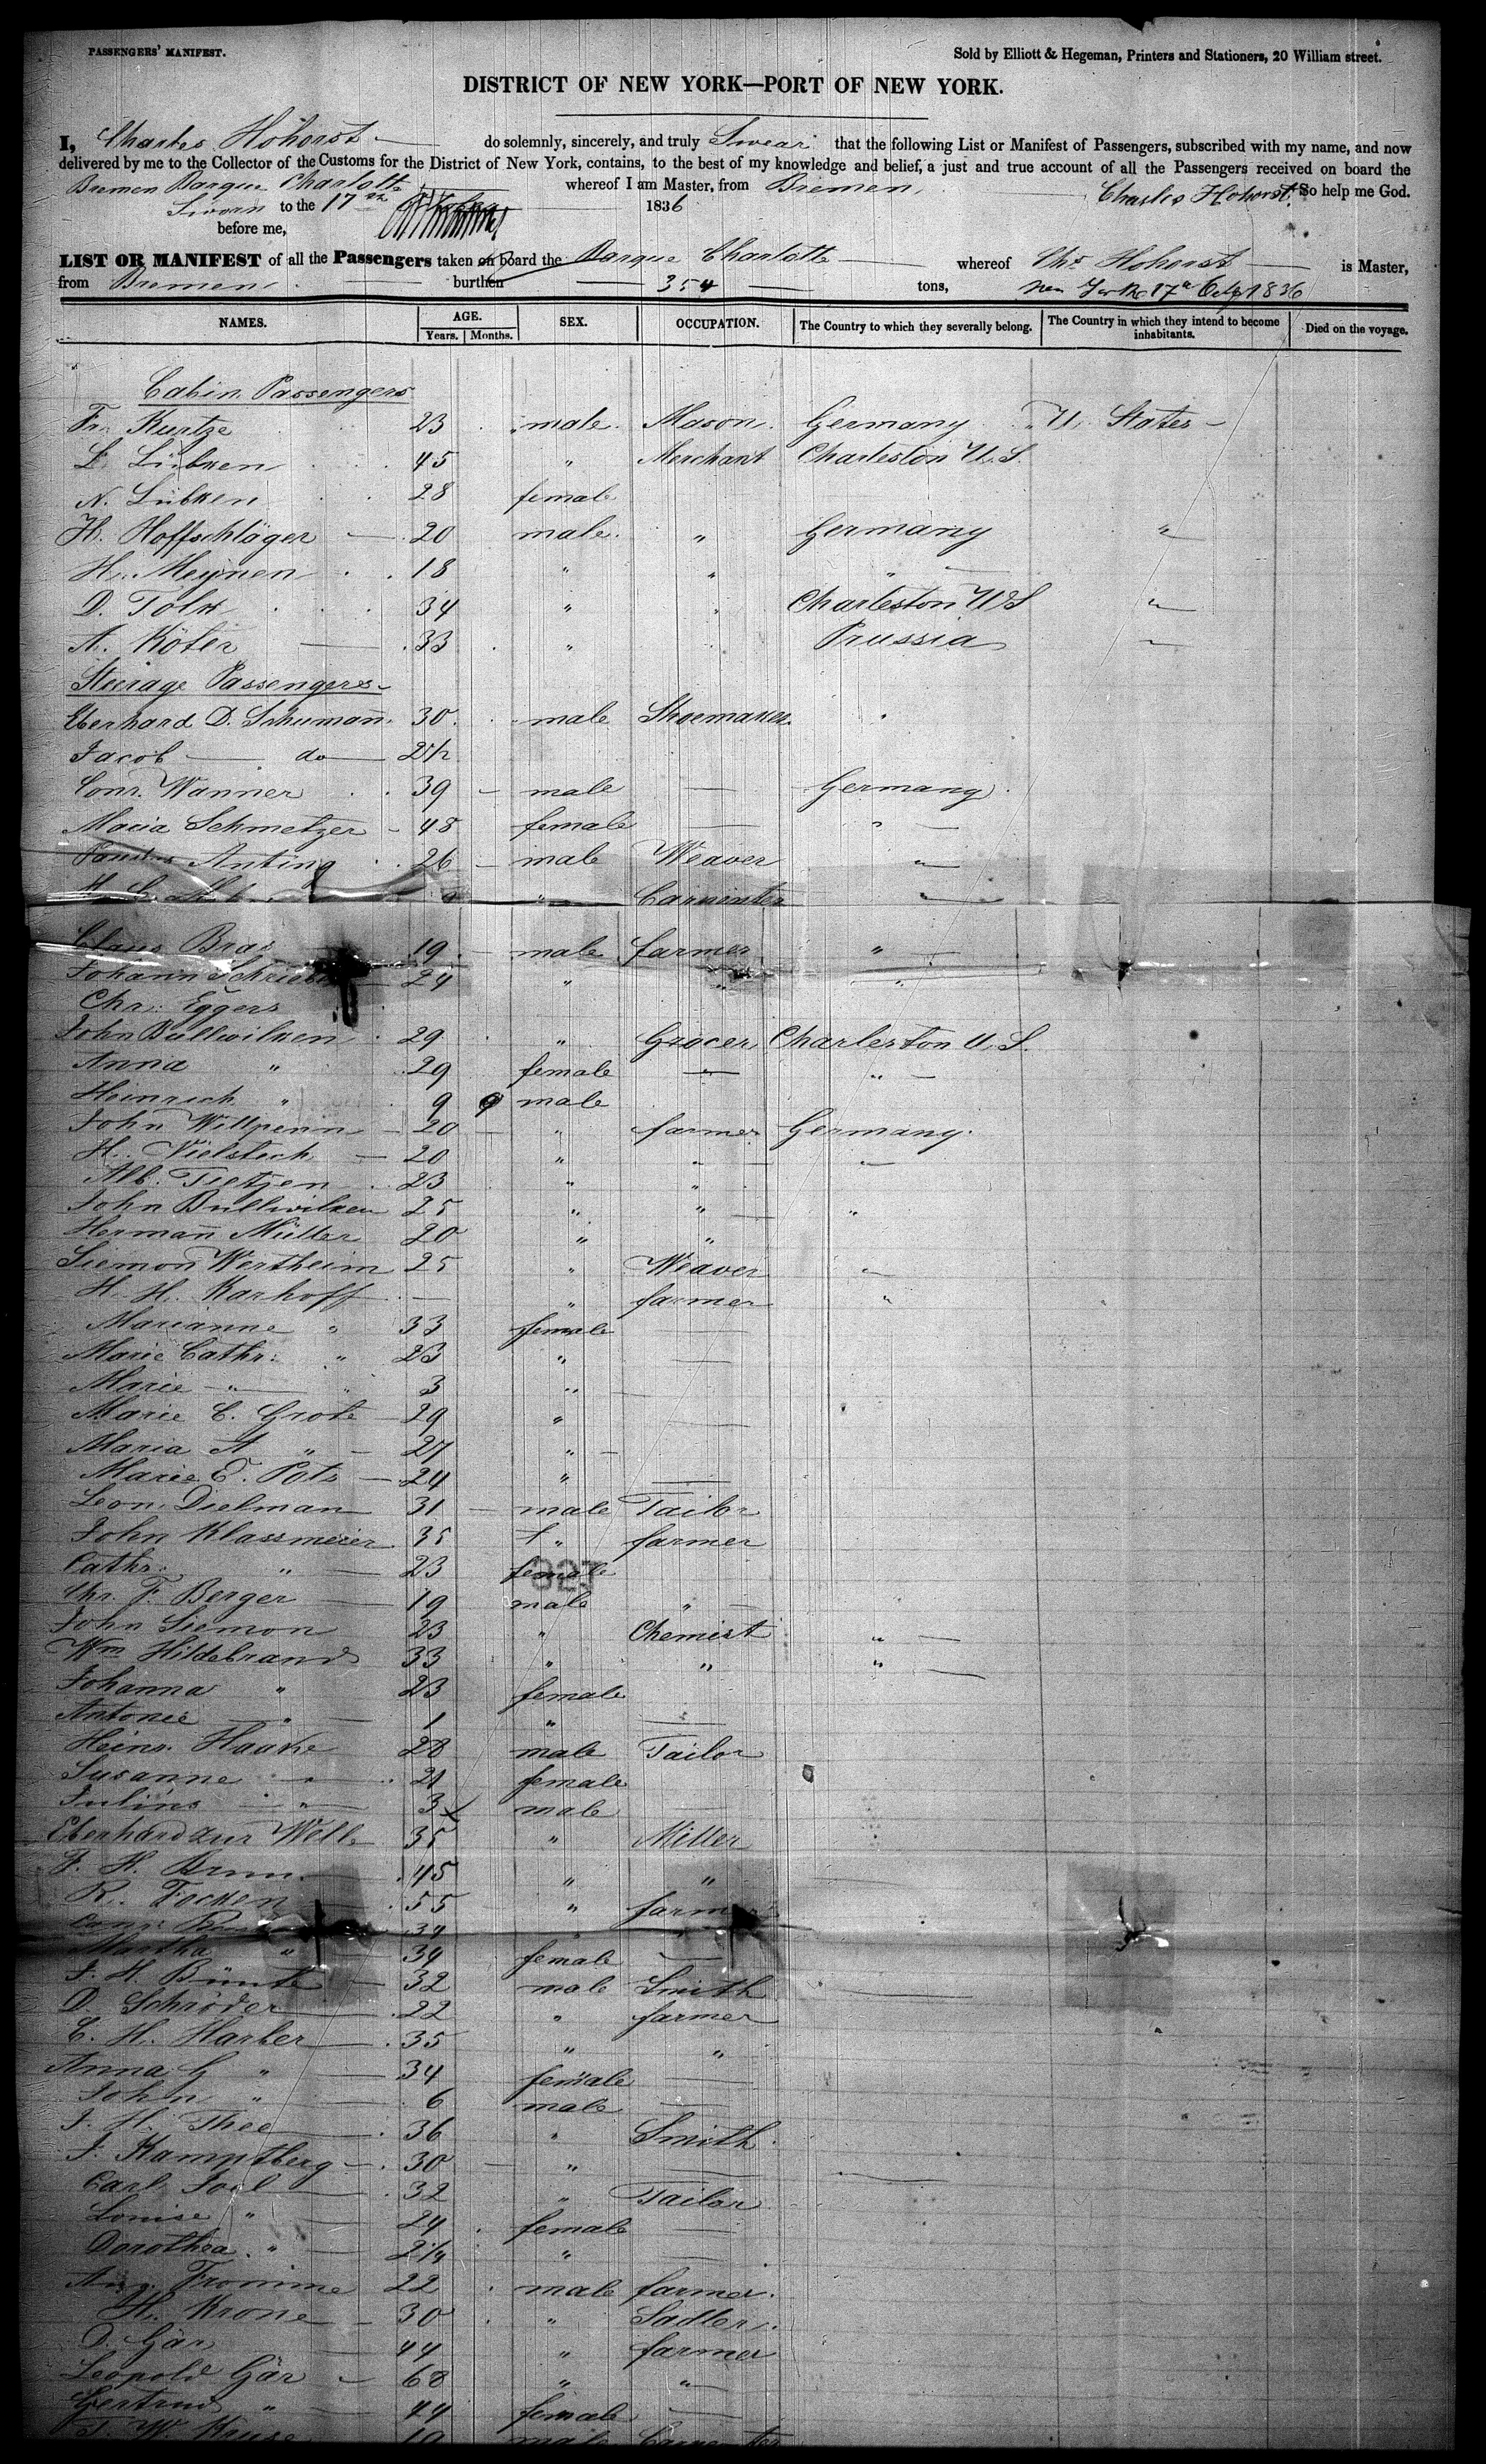 PASSENGERS' MANIFEST.
Sold by Elliott & Hegeman, Printers and Stationers, 20 William street.
DISTRICT OF NEW YORK—PORT OF NEW YORK.
I, Charles Hohorst do solemnly, sincerely, and truly Swear that the following List or Manifest of Passengers, subscribed with my name, and now
delivered by me to the Collector of the Customs for the District of New York, contains, to the best of my knowledge and belief, a just and true account of all the Passengers received on board the
Bremen Barque Charlotte whereof I am Master, from Bremen, So help me God.
Charles Hohorst.
Sworn to the 17th 1836
before me,
LIST OR MANIFEST of all the Passengers taken on board the Barque Charlotte whereof Chs Hohorst is Master,
from Bremen burthen 354 tons, New York 17th 1836
NAMES. AGE. SEX. OCCUPATION. The Country to which they severally belong. The Country in which they intend to become inhabitants. Died on the voyage.
Years. Months.
Cabin Passengers
Fr. Kurtze 23 male Mason Germany U. States
L. Lübken 45 " Merchant Charleston U.S.
N. Lübken 28 female
H. Hoffschläger 20 male " Germany "
H. Meynen 18 " " "
D. Tolk 34 " " Charleston U.S "
A. Köter 33 " Prussia "
Steerage Passengers
Eberhard D. Schumañ 30 male Shoemaker "
Jacob do 2 1/2
Conr. Wanner 39 male — Germany
Maria Schmetzer 48 female — "
Anting 26 male Weaver "
" Carpinter "
Claus Bras 19 male farmer "
Johann 24 " " "
Chr. Eggers
John Bullwilken 29 " Grocer Charleston U.S.
Anna " 29 female — "
Heinrich " 9 9 male
John Willpenn 20 " farmer Germany
H. Vielstich 20 " " "
Alb. Tietjen 23 " "
John Bullwilken 25 " " "
Hermañ Müller 20 " "
Siemon Wertheim 25 " Weaver "
H. H. Karhoff — " farmer "
Marianne " 33 female —
Marie Cathr: " 23 " —
Marie " " 3 " —
Marie C. Grote 29 " —
Maria A " 27 "
Marie E. Pots 24 " —
Leon. Dielman 31 male Tailor
John Klassmeier 35 " farmer
Cathr: " 23 female
Chr. F. Berger 19 male "
John Siemon 23 " Chemist "
Wm Hildebrand 33 " " "
Johanna " 23 female
Antonie " 1 " —
Heinr. Haake 28 male Tailor
Susanne " 21 female
Julius " 3 male —
Eberhard zur Welle 35 " Miller
J. H. Brun 45 " "
R. Focken 55 " farmer
34 " "
Martha " 34 female —
J. H. Bünte 32 male Smith
D. Schröder 22 " farmer
C. H. Harber 35 " "
Anna G " 34 female —
John " 6 male —
J. H. Thee 36 " Smith
J. Kamptberg 30 " —
Carl Joel 32 " Tailor
Louise " 24 female —
Dorothea " 2 1/4 " —
Aug. Fromme 22 male farmer
H. Krone 30 " Sadler
D. Gär 44 " farmer
Leopold Gär 68 " "
Gertrud " 44 female —
J. W. Kruse 19 male Carpenter